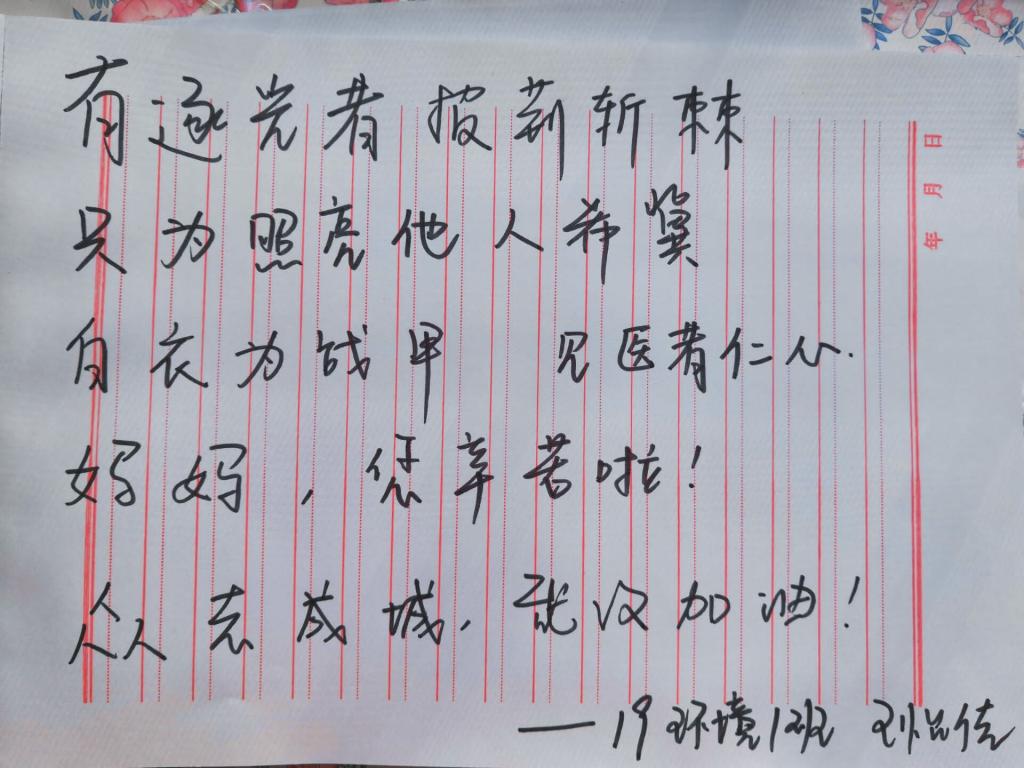 有逐光者披荆斩棘
只为照亮他人希冀
白衣为战甲 见医者仁心.
妈妈,您辛苦啦!
众志成城,武汉加油!
——19环境1班 刘品佳
年 月 日